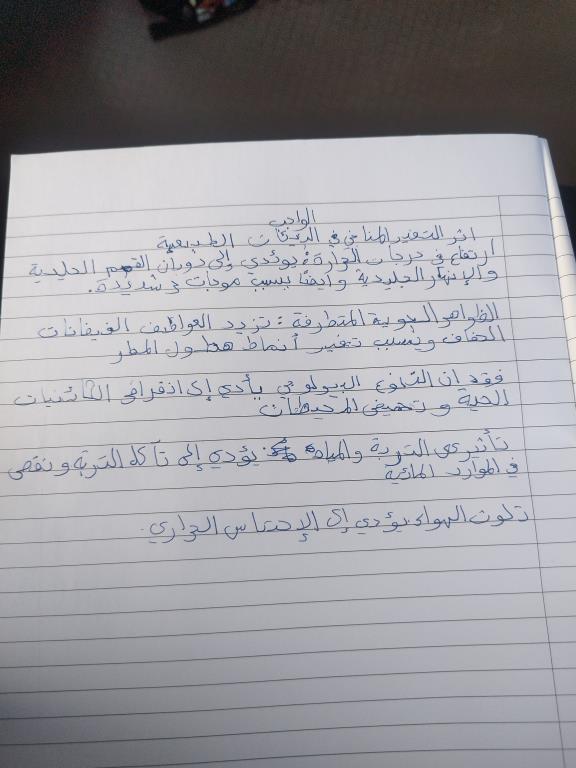 الواجب
اثر التغير المناخي في البيئات الطبيعية
ارتفاع في درجات الحرارة: يؤدي إلى ذوبان القمم الجليدية
والإنهار الجليدية وايضًا يسبب موجات شديدة.
الظواهر الجوية المتطرفة: تزيد العواطف الفيضانات
الجفاف ويسبب تغير أنماط هطول المطر
فقدان التنوع البيولوجي يأدي إلى انقراض الكائنات
الحية وتحميض المحيطات
تأثير على التربة والمياه يؤدي إلى تآكل التربة ونقص
في الموارد المائية
تلوث الهواء يؤدي إلى الإحتباس الحراري.